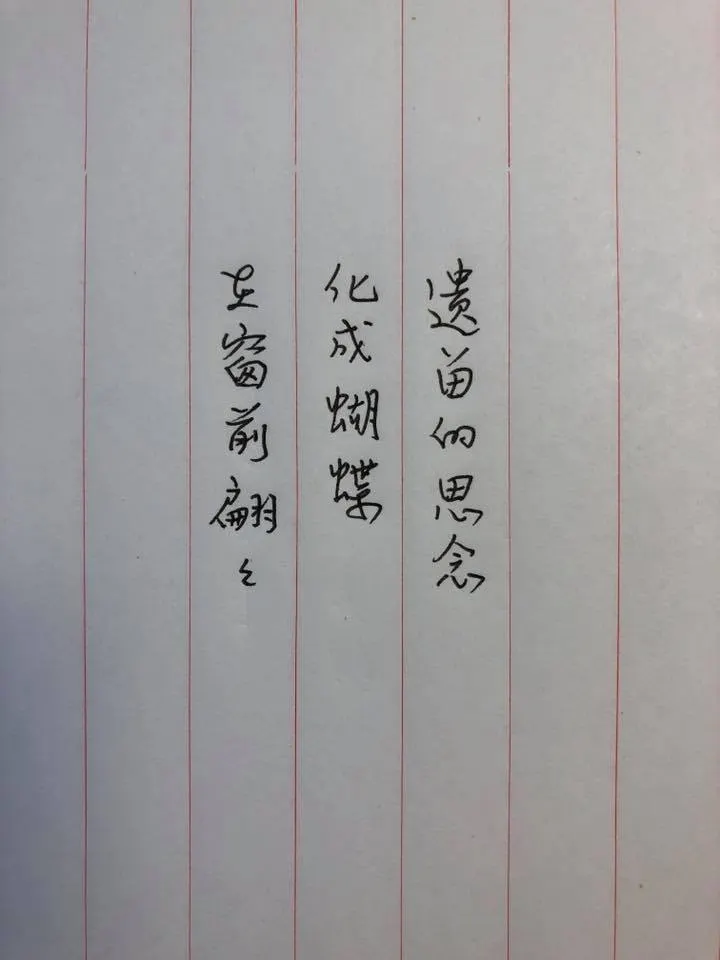 遗留的思念
化成蝴蝶
在窗前翩々